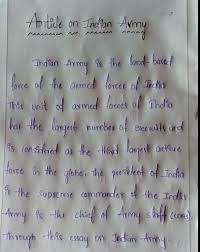 Article on Indian Army
Indian Army is the land-based
force of the armed forces of India
This unit of armed forces of India
has the largest number of recruits and
is considered as the third largest active
force in the globe. The president of India
is the supreme commander of the Indian
Army is the chief of Army staff (coas)
Through this essay on Indian-Army.